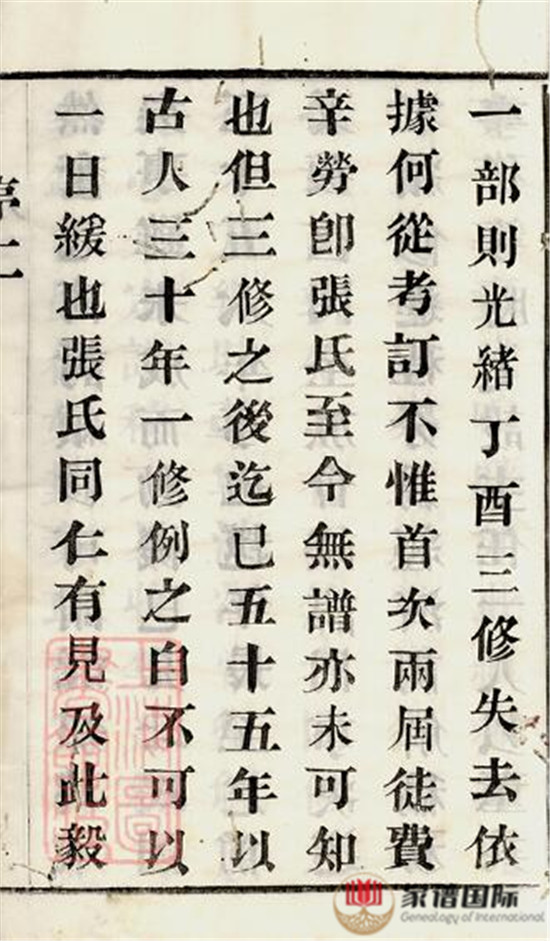 一部則光緒丁酉三修失去依
據何從考訂不惟首次兩屆徒費
辛勞卽張氏至今無譜亦未可知
也但三修之後迄已五十五年以
古人三十年一修例之自不可以
一日緩也張氏同仁有見及此毅
序二
家谱国际
Genealogy of International